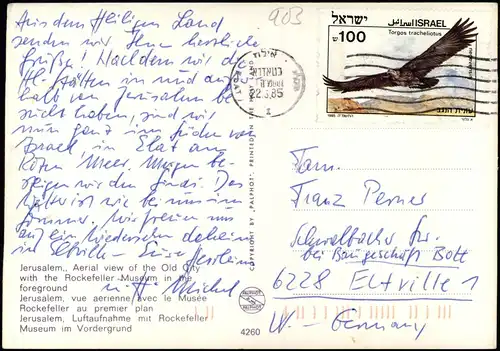 Aus dem Heiligen Land
senden wir Ihnen herzliche
Grüße. Nachdem wir die
Hl. Stätten in und außer-
halb von Jerusalem be-
sucht haben, sind wir
nun ganz im Süden von
Israel, in Elat am
Roten Meer. Morgen be-
steigen wir den Sinai. Das
Wetter ist wie bei uns im
Sommer. Wir freuen uns
auf ein Wiedersehen daheim
in Eltville - Eure
903
ישראל اسرائيل ISRAEL
Torgos tracheliotus
100
22.3.85
COPYRIGHT BY "PALPHOT". PRINTED
Fam.
Franz Perner
Schwalbacher Str.
bei Baugeschäft Bott
6228 Eltville 1
W-Germany
Jerusalem,, Aerial view of the Old City
with the Rockefeller-Museum in the
foreground
Jerusalem, vue aerienne avec le Musée
Rockefeller au premier plan
Jerusalem, Luftaufnahme mit Rockefeller
Museum im Vordergrund
PALPHOT
4260